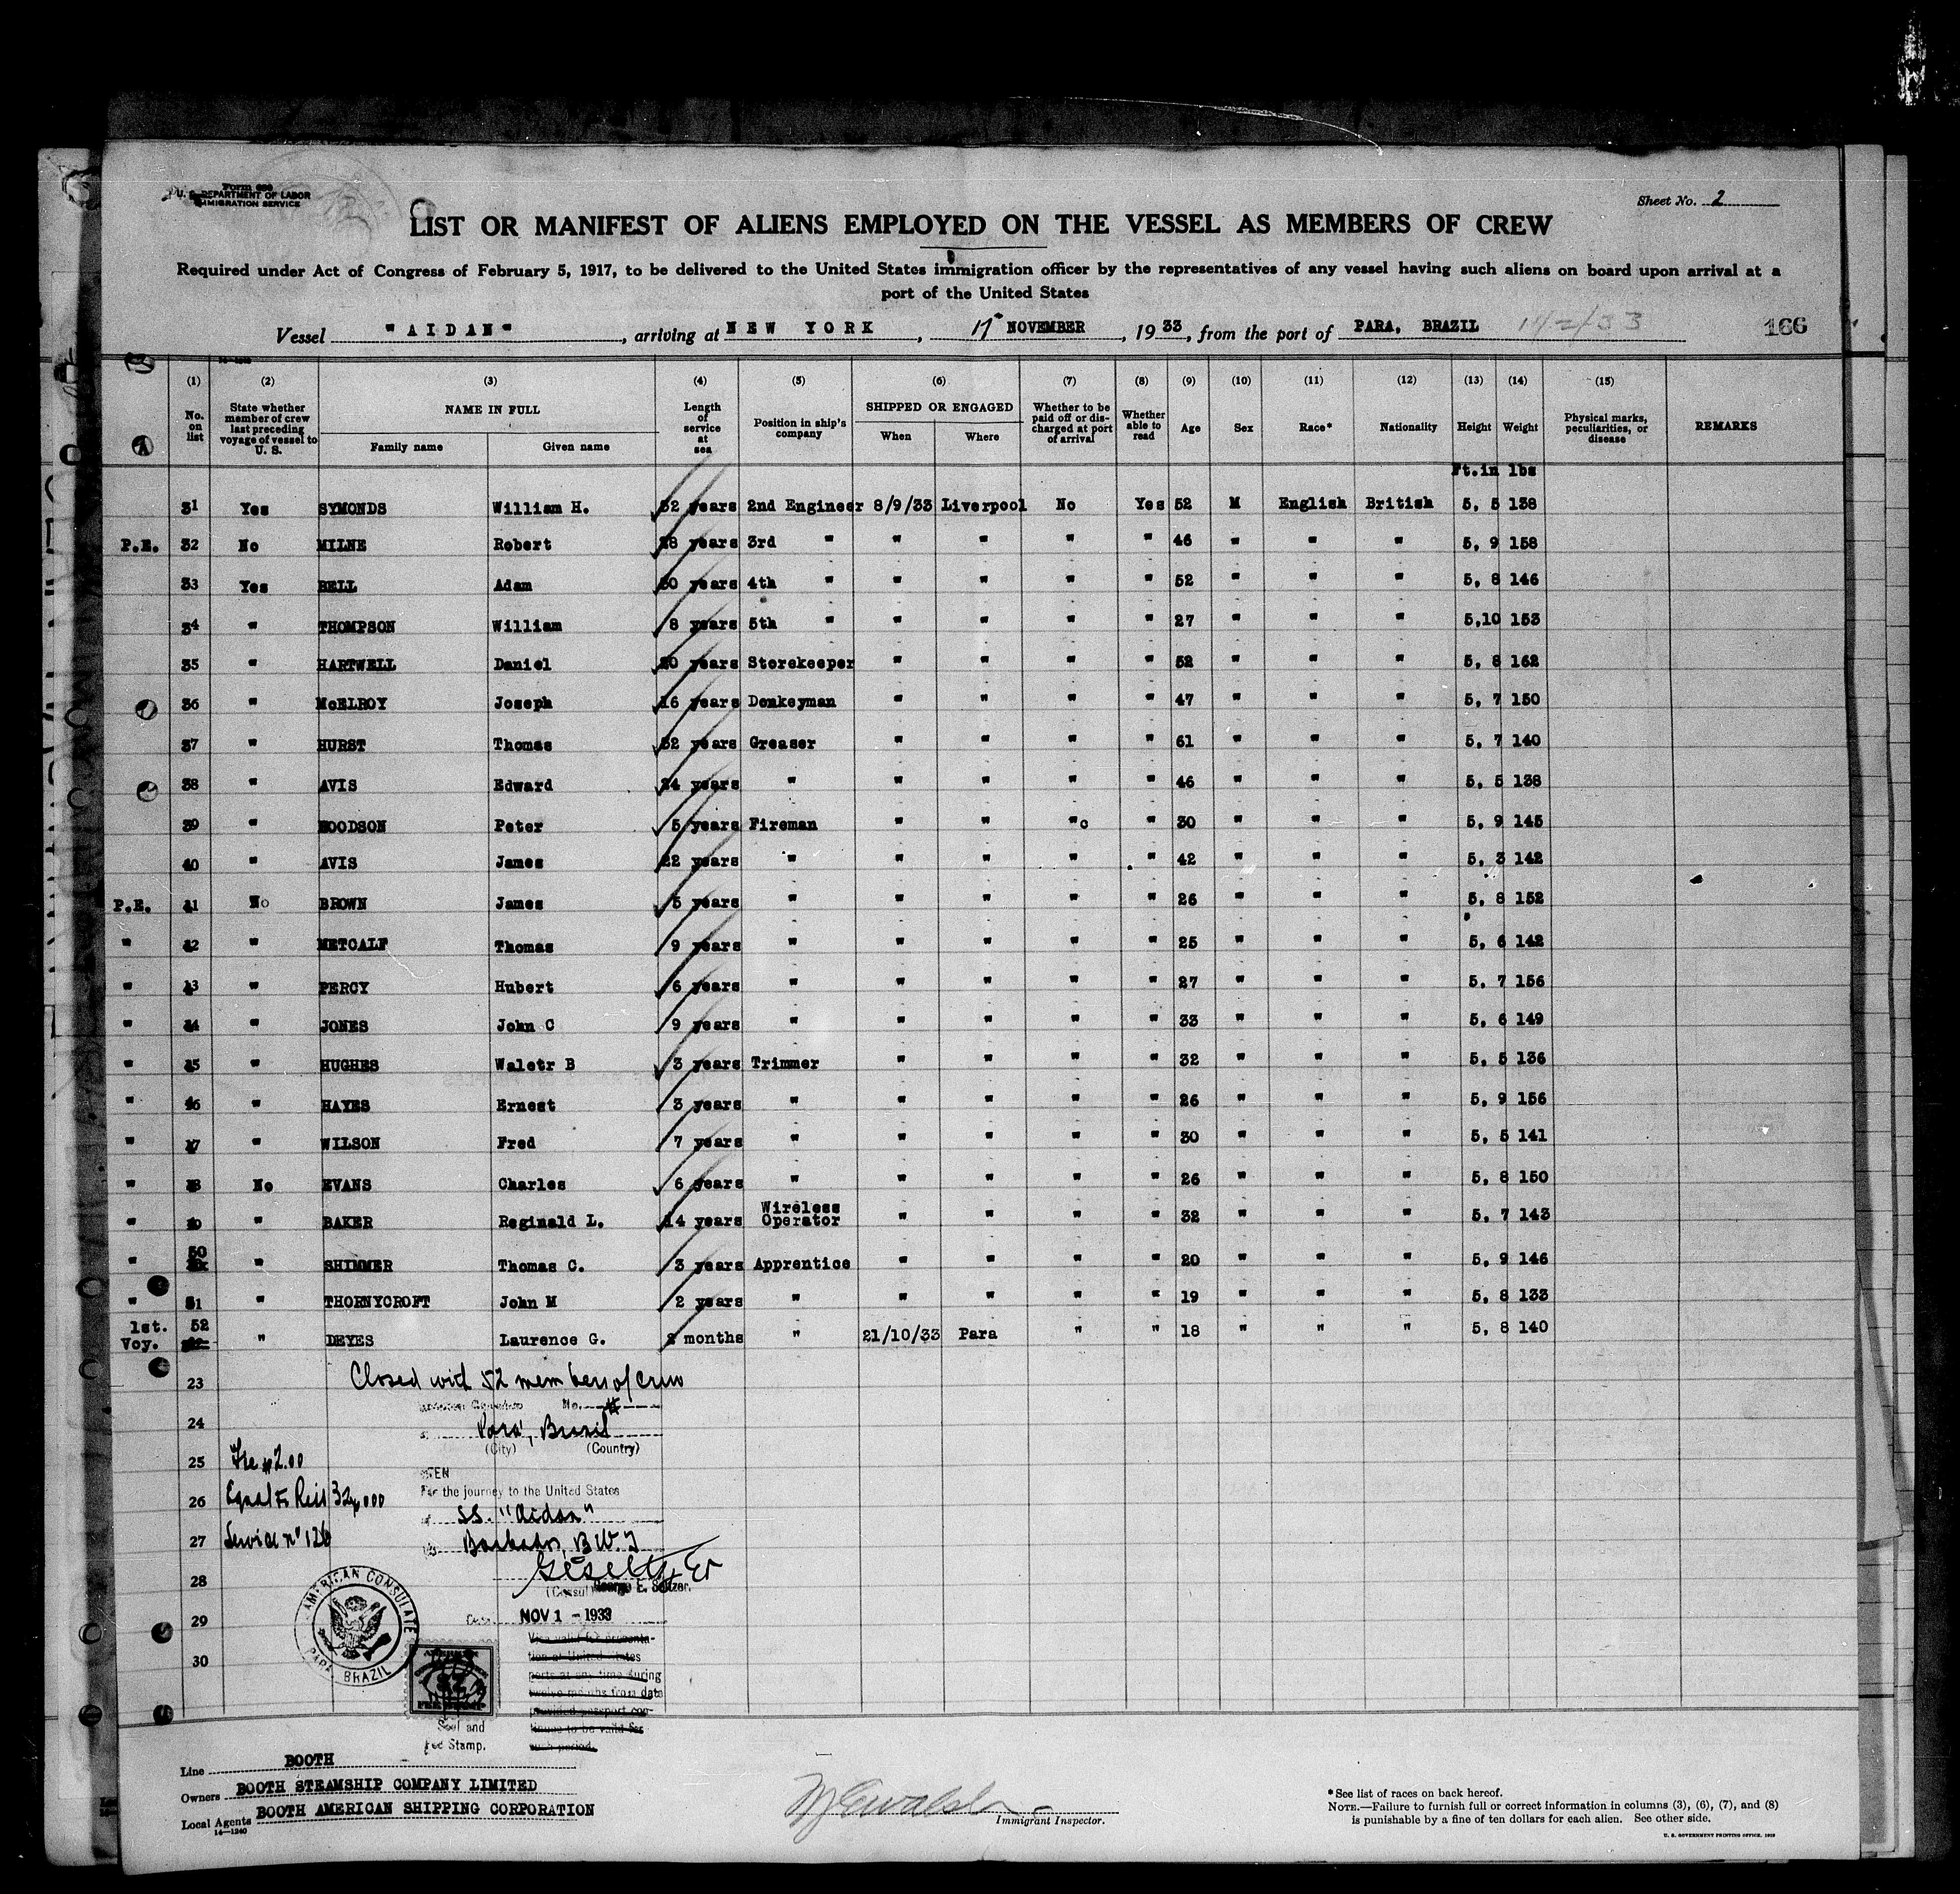 Form 689
U. S. DEPARTMENT OF LABOR
IMMIGRATION SERVICE
Sheet No. 2
LIST OR MANIFEST OF ALIENS EMPLOYED ON THE VESSEL AS MEMBERS OF CREW
Required under Act of Congress of February 5, 1917, to be delivered to the United States immigration officer by the representatives of any vessel having such aliens on board upon arrival at a
port of the United States
Vessel "AIDAN", arriving at NEW YORK, 17 NOVEMBER, 1933, from the port of PARA, BRAZIL 166
(1) (2) (3) (4) (5) (6) (7) (8) (9) (10) (11) (12) (13) (14) (15)
No. on list State whether member of crew last preceding voyage of vessel to U. S. NAME IN FULL Family name Given name Length of service at sea Position in ship's company SHIPPED OR ENGAGED When Where Whether to be paid off or discharged at port of arrival Whether able to read Age Sex Race* Nationality Height Weight Physical marks, peculiarities, or disease REMARKS
Ft.in lbs
31 Yes SYMONDS William H. 32 years 2nd Engineer 8/9/33 Liverpool No Yes 52 M English British 5, 5 138
P.E. 32 No MILNE Robert 28 years 3rd " " " " " 46 " " " 5, 9 158
33 Yes BELL Adam 30 years 4th " " " " " 52 " " " 5, 8 146
34 " THOMPSON William 8 years 5th " " " " " 27 " " " 5,10 153
35 " HARTWELL Daniel 20 years Storekeeper " " " " 52 " " " 5, 8 162
36 " McELROY Joseph 16 years Donkeyman " " " " 47 " " " 5, 7 150
37 " HURST Thomas 32 years Greaser " " " " 61 " " " 5, 7 140
38 " AVIS Edward 24 years " " " " " 46 " " " 5, 5 138
39 " HOODSON Peter 5 years Fireman " " " " 30 " " " 5, 9 145
40 " AVIS James 22 years " " " " " 42 " " " 5, 3 142
P.E. 41 No BROWN James 5 years " " " " " 26 " " " 5, 8 152
" 42 " METCALF Thomas 9 years " " " " " 25 " " " 5, 6 142
" 43 " PERCY Hubert 6 years " " " " " 27 " " " 5, 7 156
" 44 " JONES John C 9 years " " " " " 33 " " " 5, 6 149
" 45 " HUGHES Waletr B 3 years Trimmer " " " " 32 " " " 5, 5 136
" 46 " HAYES Ernest 3 years " " " " " 26 " " " 5, 9 156
" 47 " WILSON Fred 7 years " " " " " 30 " " " 5, 5 141
" 48 No EVANS Charles 6 years " " " " " 26 " " " 5, 8 150
" " BAKER Reginald L. 14 years Wireless Operator " " " " 32 " " " 5, 7 143
" 50 " SHIMMER Thomas C. 3 years Apprentice " " " " 20 " " " 5, 9 146
" 51 " THORNYCROFT John M 2 years " " " " " 19 " " " 5, 8 133
1st. Voy. 52 " DEYES Laurence G. months " 21/10/33 Para " " 18 " " " 5, 8 140
23
Closed with 52 members of crew
No.
24
Para, Brazil
(City) (Country)
25 Fee $2.00
SEEN
For the journey to the United States
26 Equal to Reis 32$000
SS. "Aidan"
27 Service nº 126
Barbados, B.W.I
28
(Consul) George E. Seltzer.
Date NOV 1 - 1933
29
30
AMERICAN CONSULATE
PARA, BRAZIL
Visa valid for presenta-
tion at United States
ports at any time during
twelve months from date
provided passport con-
tinues to be valid for
such period.
AMERICAN
FEE STAMP
Seal and
Fee Stamp.
Line BOOTH
Owners BOOTH STEAMSHIP COMPANY LIMITED
Local Agents BOOTH AMERICAN SHIPPING CORPORATION
14—1240
Immigrant Inspector.
* See list of races on back hereof.
NOTE.—Failure to furnish full or correct information in columns (3), (6), (7), and (8)
is punishable by a fine of ten dollars for each alien. See other side.
U. S. GOVERNMENT PRINTING OFFICE. 1929